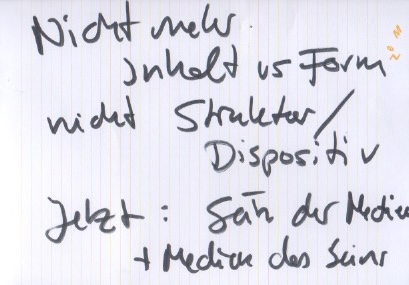 Nicht mehr
Inhalt vs Form
nicht Struktur/
Dispositiv
Jetzt: Sein der Medien
+ Medien des Seins